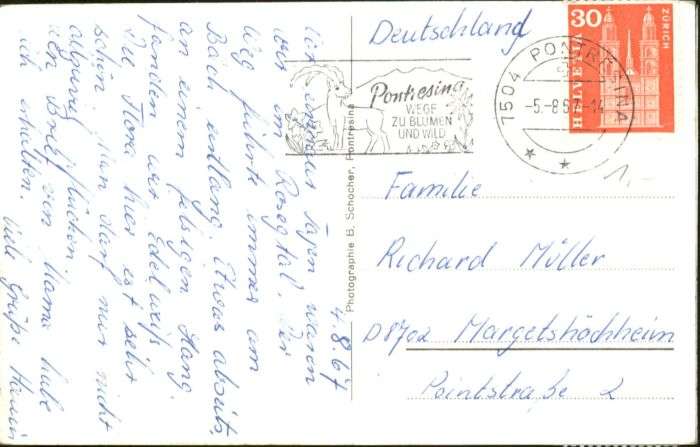 4.8.67
wir waren
im Rosegtal. Der
Weg führte immer am
Bach entlang. Etwas abseits,
an einem felsigen Hang
fanden wir Edelweiß.
Die Flora hier ist sehr
schön. Man darf nur nicht
pflücken
den Brief von Mama habe
ich erhalten. Viele Grüße
Photographie B. Schocher, Pontresina
Deutschland
Pontresina
WEGE
ZU BLUMEN
UND WILD
7504 PONTRESINA
-5.-8 67.-14
30
HELVETIA
ZÜRICH
1,-
Familie
Richard Müller
D8702 Margetshöchheim
Pointstraße 2